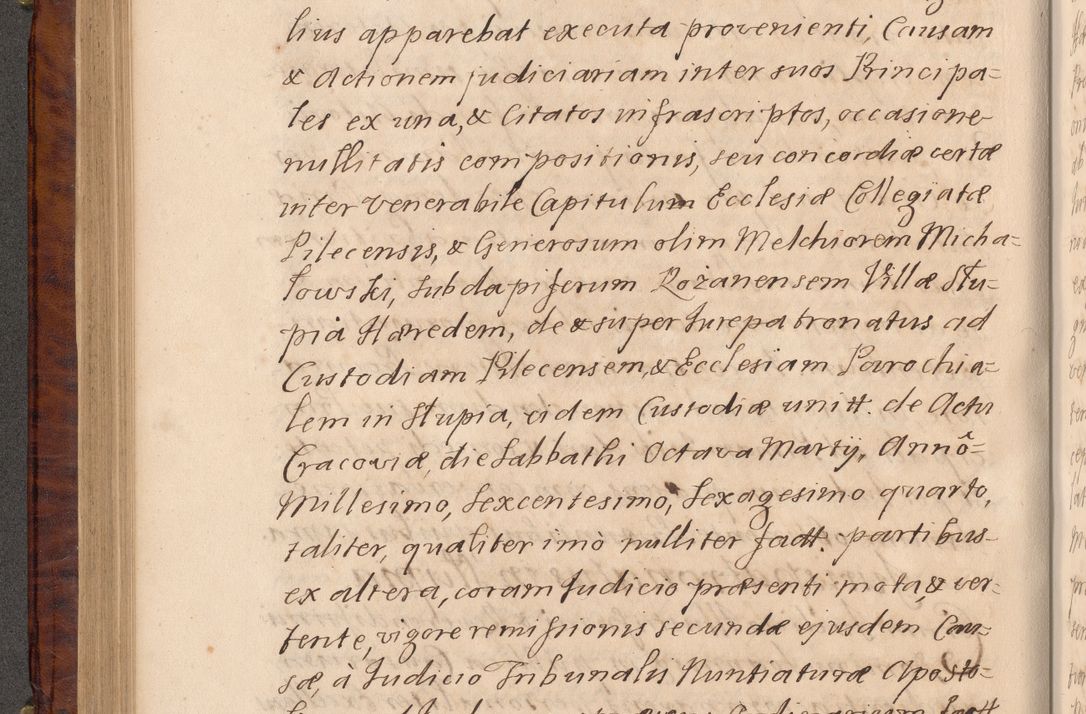 lius apparebat executa provenienti, Causam
& Actionem judiciariam inter suos Principa=
les ex una, & Citatos infrascriptos, occasione
nullitatis compositionis, seu concordiæ certæ
inter Venerabile Capitulum Ecclesiæ Collegiatæ
Pilecensis, & Generosum olim Melchiorem Micha=
lowski, Subdapiferum Rożanensem Villæ Stu=
pia Hæredem, de & super Jure patronatus ad
Custodiam Pilecensem, & Ecclesiam Parochia=
lem in Stupia, eidem Custodiæ unitt. de Actu
Cracoviæ, die Sabbathi Octava Martij, Annô=
Millesimo, Sexcentesimo, Sexagesimo quarto,
taliter, qualiter imò nulliter factt. partibus
ex altera, coram Judicio præsenti mota, & ver=
tente, vigore remissionis secundæ ejusdem Cau=
sæ, à Judicio Tribunalis Nuntiaturæ Aposto=